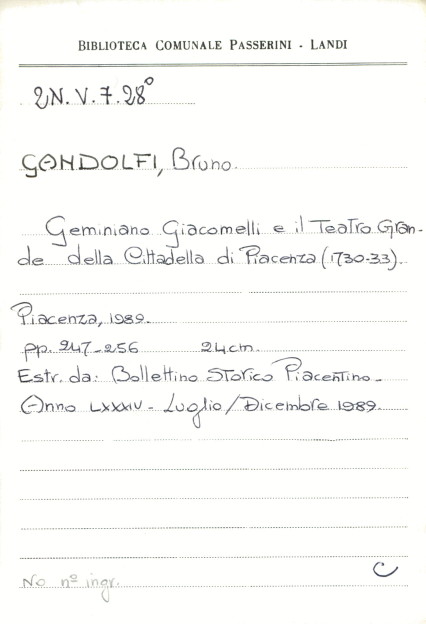 BIBLIOTECA COMUNALE PASSERINI - LANDI
2N.V.7.28°
GANDOLFI, Bruno.
Geminiano Giacomelli e il Teatro Gran-
de della Cittadella di Piacenza (1730-33).
Piacenza, 1989.
pp. 247-256 24cm.
Estr. da: Bollettino Storico Piacentino -
Anno LXXXIV - Luglio/Dicembre 1989.
C
No n° ingr.